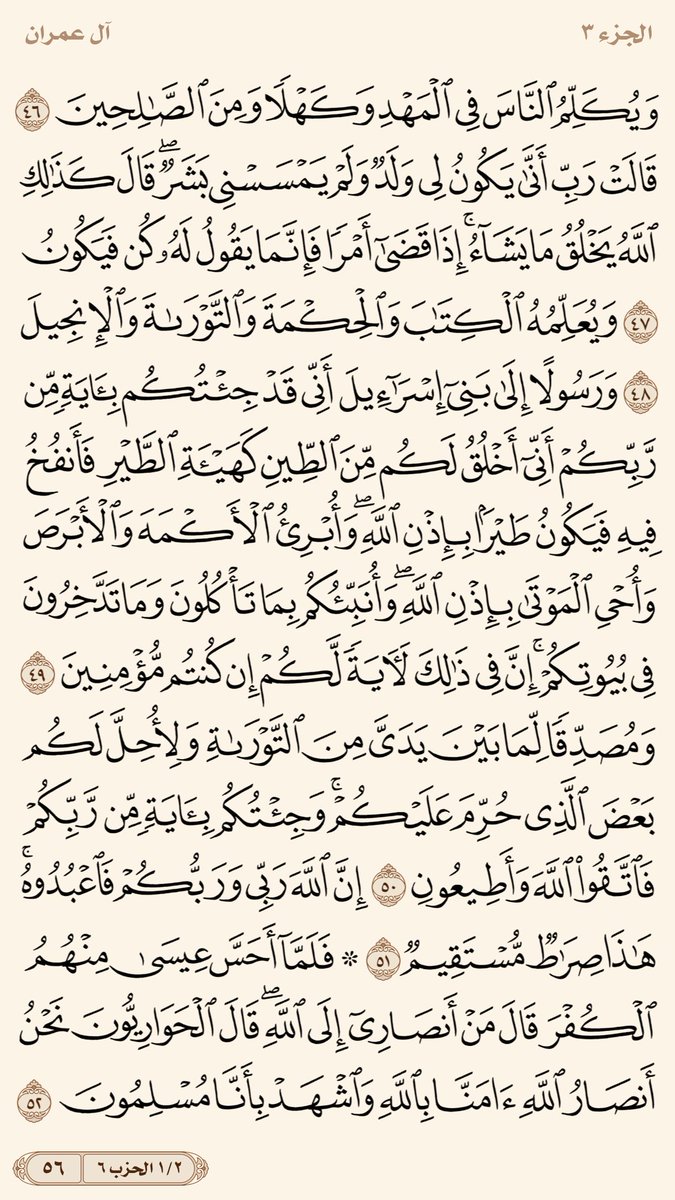 الجزء ٣ آل عمران
وَيُكَلِّمُ ٱلنَّاسَ فِى ٱلْمَهْدِ وَكَهْلًا وَمِنَ ٱلصَّـٰلِحِينَ ٤٦
قَالَتْ رَبِّ أَنَّىٰ يَكُونُ لِى وَلَدٌ وَلَمْ يَمْسَسْنِى بَشَرٌ ۖ قَالَ كَذَٰلِكِ
ٱللَّهُ يَخْلُقُ مَا يَشَآءُ ۚ إِذَا قَضَىٰٓ أَمْرًا فَإِنَّمَا يَقُولُ لَهُۥ كُن فَيَكُونُ
٤٧ وَيُعَلِّمُهُ ٱلْكِتَـٰبَ وَٱلْحِكْمَةَ وَٱلتَّوْرَىٰةَ وَٱلْإِنجِيلَ
٤٨ وَرَسُولًا إِلَىٰ بَنِىٓ إِسْرَٰٓءِيلَ أَنِّى قَدْ جِئْتُكُم بِـَٔايَةٍ مِّن
رَّبِّكُمْ ۖ أَنِّىٓ أَخْلُقُ لَكُم مِّنَ ٱلطِّينِ كَهَيْـَٔةِ ٱلطَّيْرِ فَأَنفُخُ
فِيهِ فَيَكُونُ طَيْرًۢا بِإِذْنِ ٱللَّهِ ۖ وَأُبْرِئُ ٱلْأَكْمَهَ وَٱلْأَبْرَصَ
وَأُحْىِ ٱلْمَوْتَىٰ بِإِذْنِ ٱللَّهِ ۖ وَأُنَبِّئُكُم بِمَا تَأْكُلُونَ وَمَا تَدَّخِرُونَ
فِى بُيُوتِكُمْ ۚ إِنَّ فِى ذَٰلِكَ لَـَٔايَةً لَّكُمْ إِن كُنتُم مُّؤْمِنِينَ ٤٩
وَمُصَدِّقًا لِّمَا بَيْنَ يَدَىَّ مِنَ ٱلتَّوْرَىٰةِ وَلِأُحِلَّ لَكُم
بَعْضَ ٱلَّذِى حُرِّمَ عَلَيْكُمْ ۚ وَجِئْتُكُم بِـَٔايَةٍ مِّن رَّبِّكُمْ
فَٱتَّقُوا۟ ٱللَّهَ وَأَطِيعُونِ ٥٠ إِنَّ ٱللَّهَ رَبِّى وَرَبُّكُمْ فَٱعْبُدُوهُ ۚ
هَـٰذَا صِرَٰطٌ مُّسْتَقِيمٌ ٥١ ۞ فَلَمَّآ أَحَسَّ عِيسَىٰ مِنْهُمُ
ٱلْكُفْرَ قَالَ مَنْ أَنصَارِىٓ إِلَى ٱللَّهِ ۖ قَالَ ٱلْحَوَارِيُّونَ نَحْنُ
أَنصَارُ ٱللَّهِ ءَامَنَّا بِٱللَّهِ وَٱشْهَدْ بِأَنَّا مُسْلِمُونَ ٥٢
١/٢ الحزب ٦ ٥٦